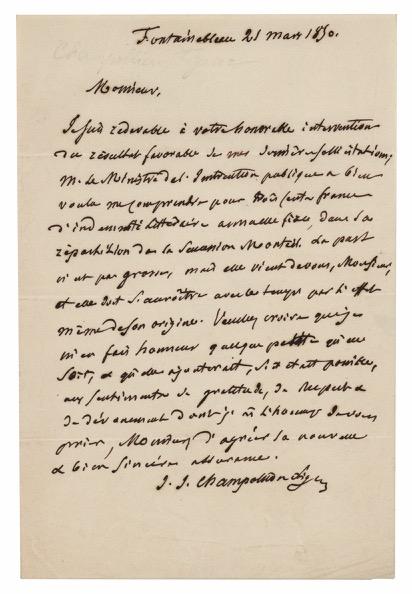 Fontainebleau 21 mars 1850.
Monsieur,
Je suis redevable à votre honorable intervention
du résultat favorable de mes dernières sollicitations;
M. le Ministre de l'Instruction publique a bien
voulu me comprendre pour trois cents francs
d'indemnité littéraire annuelle fixe, dans la
répartition de la succession Monteil. La part
n'est pas grosse, mais elle vient de vous, Monsieur,
et elle doit s'accroître avec le temps par l'effet
même de son origine. Veuillez croire que je
m'en fais honneur quelque petite qu'elle
soit, & qu'elle ajouterait, s'il était possible,
aux sentiments de gratitude, de respect &
de dévouement dont je
prier, Monsieur, d'agréer la nouvelle
& bien sincère assurance.
J. J. Champollion Figeac